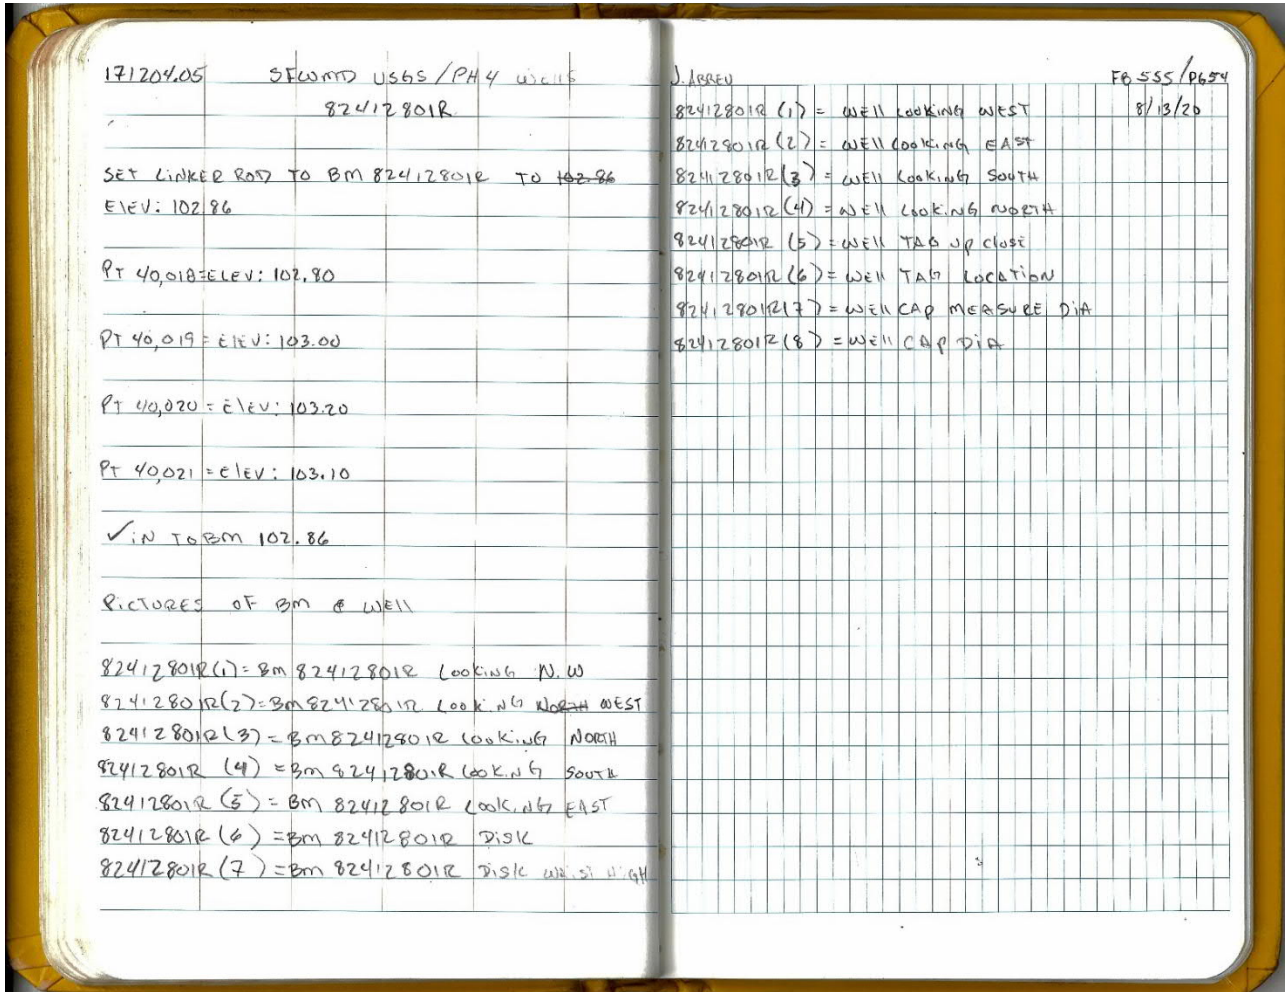 171204.05 SFWMD USGS/PH4 Wells
82412801R
SET LINKER ROD TO BM 82412801R TO 102.86
ElEV: 102.86
PT 40,018=ELEV: 102.80
PT 40,019=ElEV: 103.00
PT 40,020=ElEV: 103.20
PT 40,021=ElEV: 103.10
✓ iN TO BM 102.86
PiCTURES OF BM & WEll
82412801R(1)=BM 82412801R LOOKiNG N.W
82412801R(2)=BM 82412801R LOOKiNG NORTH WEST
82412801R(3)=BM 82412801R LOOKiNG NORTH
82412801R (4)=BM 82412801R LOOKiNG SOUTH
82412801R (5)=BM 82412801R LOOKiNG EAST
82412801R (6)=BM 82412801R DiSK
82412801R (7)=BM 82412801R DiSK WAiST HiGH
J. ABREU FB 555/PG54
82412801R (1) = WEll LOOKiNG WEST 8/13/20
82412801R (2) = WEll LOOKiNG EAST
82412801R (3) = WEll LOOKiNG SOUTH
82412801R (4) = WEll LOOKiNG NORTH
82412801R (5) = WEll TAG UP ClOSE
82412801R (6) = WEll TAG LOCATiON
82412801R (7) = WEll CAP MEASURE DiA
82412801R (8) = WEll CAP DiA